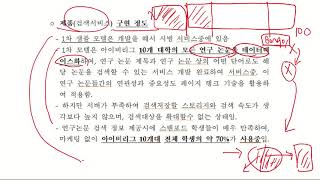 ○ 제품(검색서비스) 구현 정도
- 1차 샘플 모델은 개발을 해서 시범 서비스중에 있음
- 1차 모델은 아이비리그 10개 대학의 모든 연구 논문을 데이터
화하여, 연구 논문 제목과 연구 논문 상의 어떤 단어로도 해
당 논문을 검색할 수 있는 서비스 개발 완료하여 서비스중. 이
연구 논문들간의 연관성과 중요성도 페이지 랭크 기술을 활용하
여 적용함.
- 하지만 서버가 부족하여 검색저장할 스토리지와 검색 속도가 생
각보다 높지 않으며, 검색대상을 확대할수 없는 상태임.
- 연구논문 검색 정보 제공시에 스탠포드 학생들이 매우 만족하여,
마케팅 없이 아이비리그 10개대 전체 학생의 약 70%가 사용중임.
100